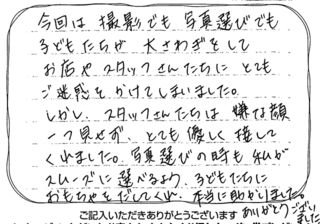 今回は 撮影でも 写真選びでも
子どもたちが 大さわぎをして
お店や スタッフさんたちに とても
ご迷惑を かけてしまいました。
しかし、スタッフさんたちは 嫌な顔
一つ見せず、とても 優しく 接して
くれました。写真選びの時も 私が
スムーズに 選べるよう 子どもたちに
おもちゃをだしてくれ、本当に助かりました。
ありがとうございました
ご記入いただきありがとうございます